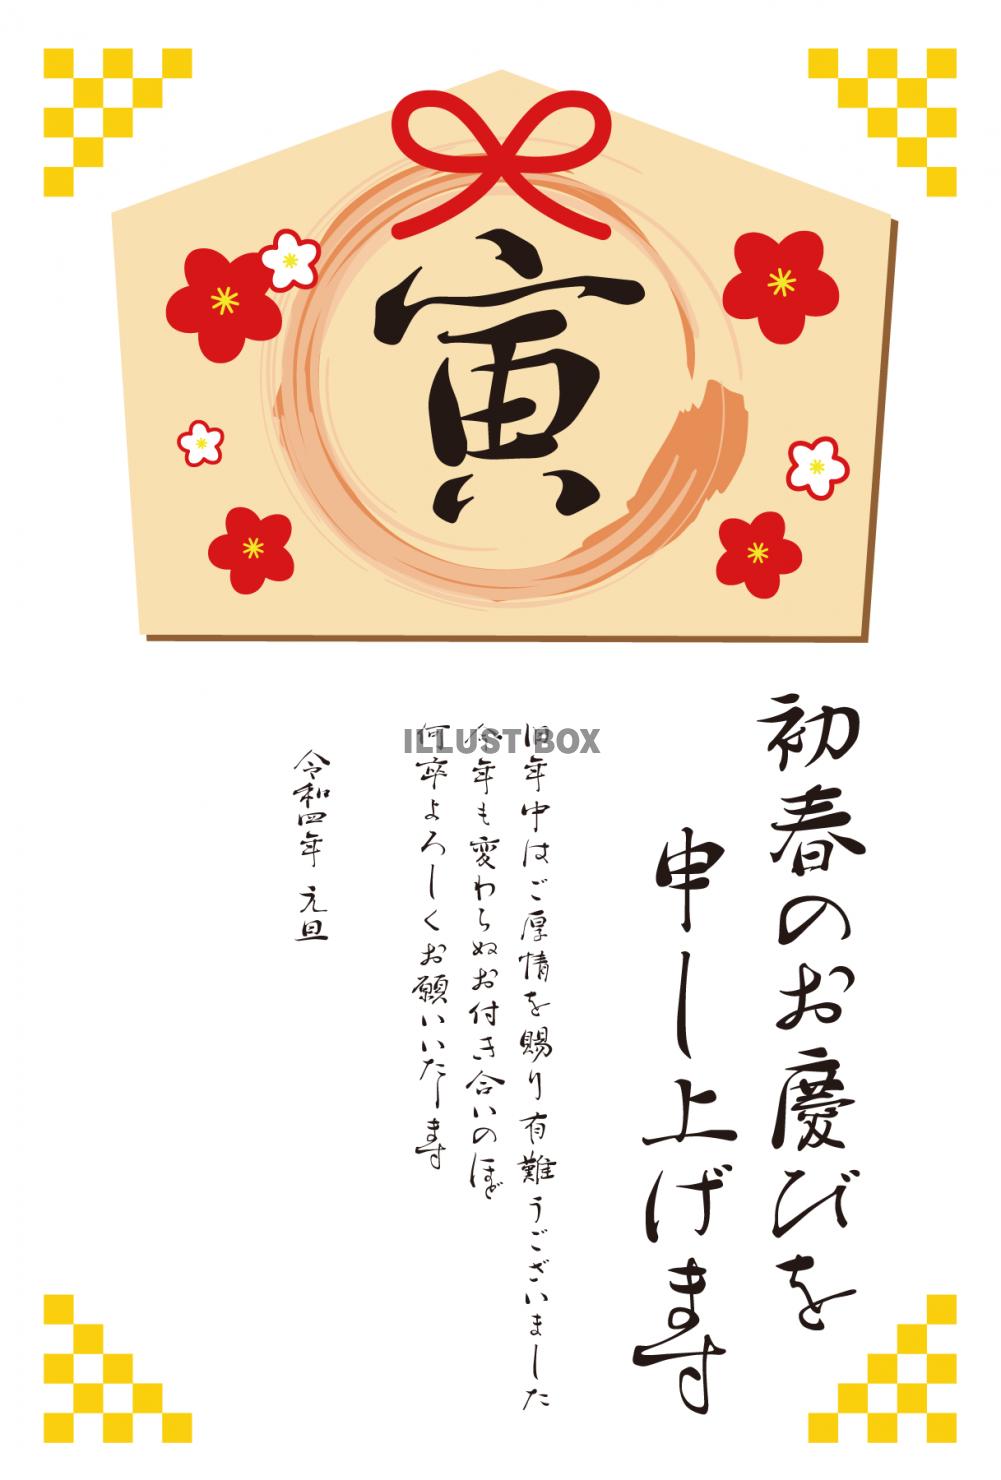 寅
初春のお慶びを
申し上げます
旧年中はご厚情を賜り有難うございました
今年も変わらぬお付き合いのほど
何卒よろしくお願いいたします
令和四年 元旦
ILLUST BOX